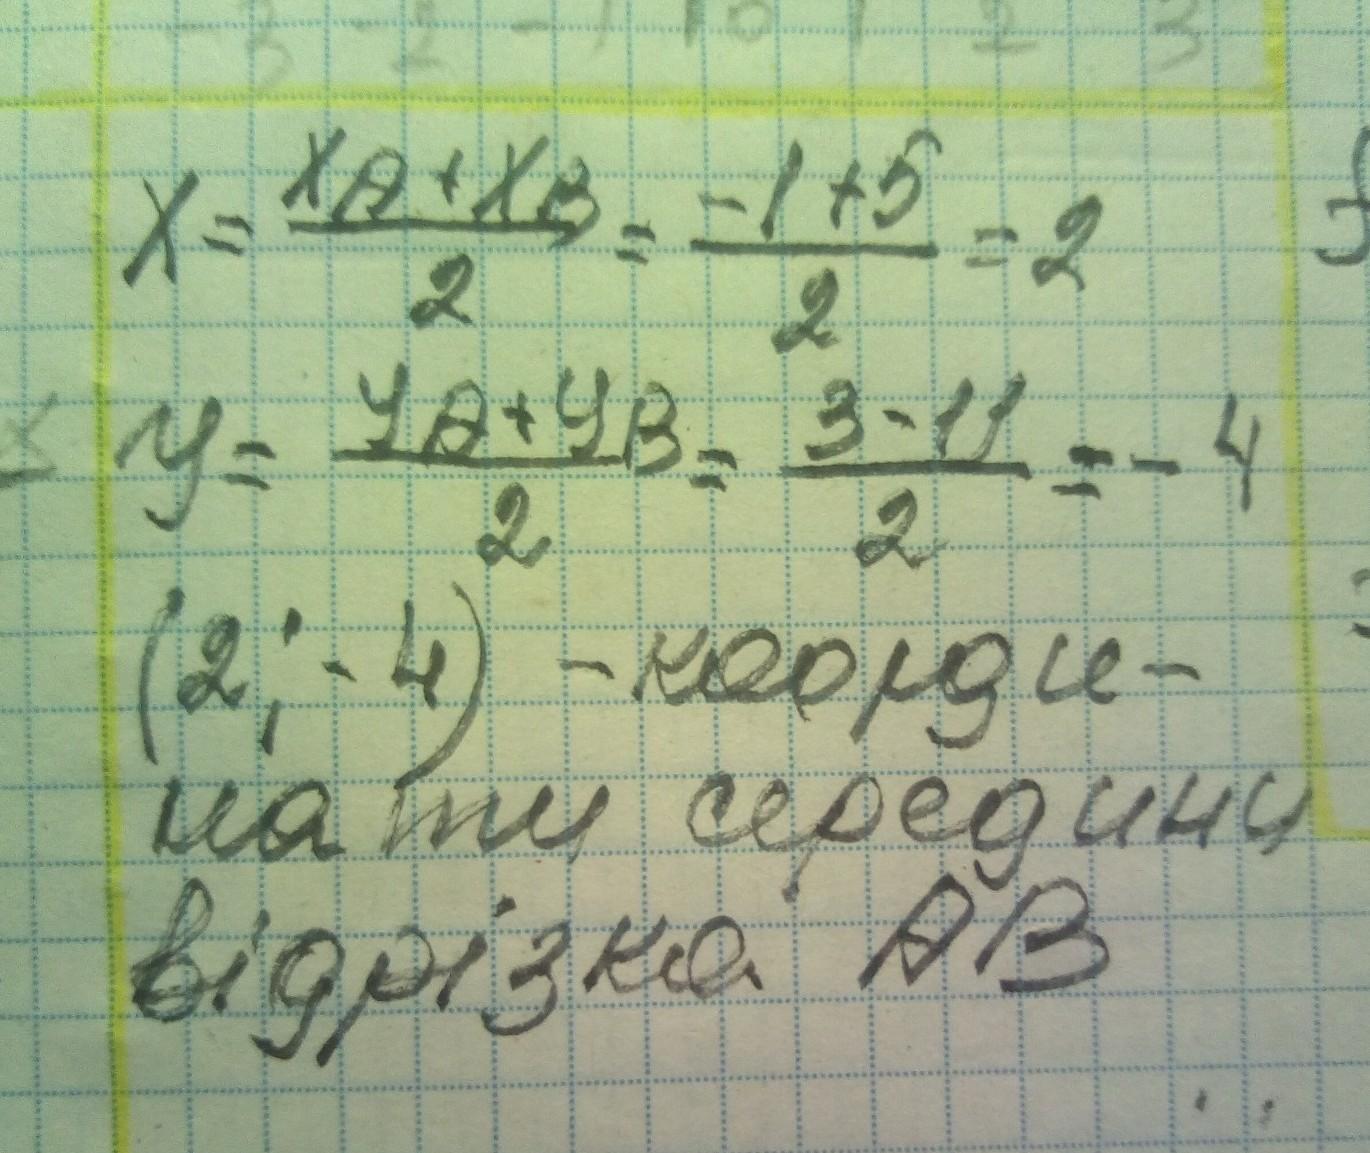 -3 -2 -1 0 1 2 3
X = (XA + XB)/2 = (-1 + 5)/2 = 2
y = (yA + yB)/2 = (3 - 11)/2 = - 4
(2; - 4) - коорди-
нати середини
відрізка AB